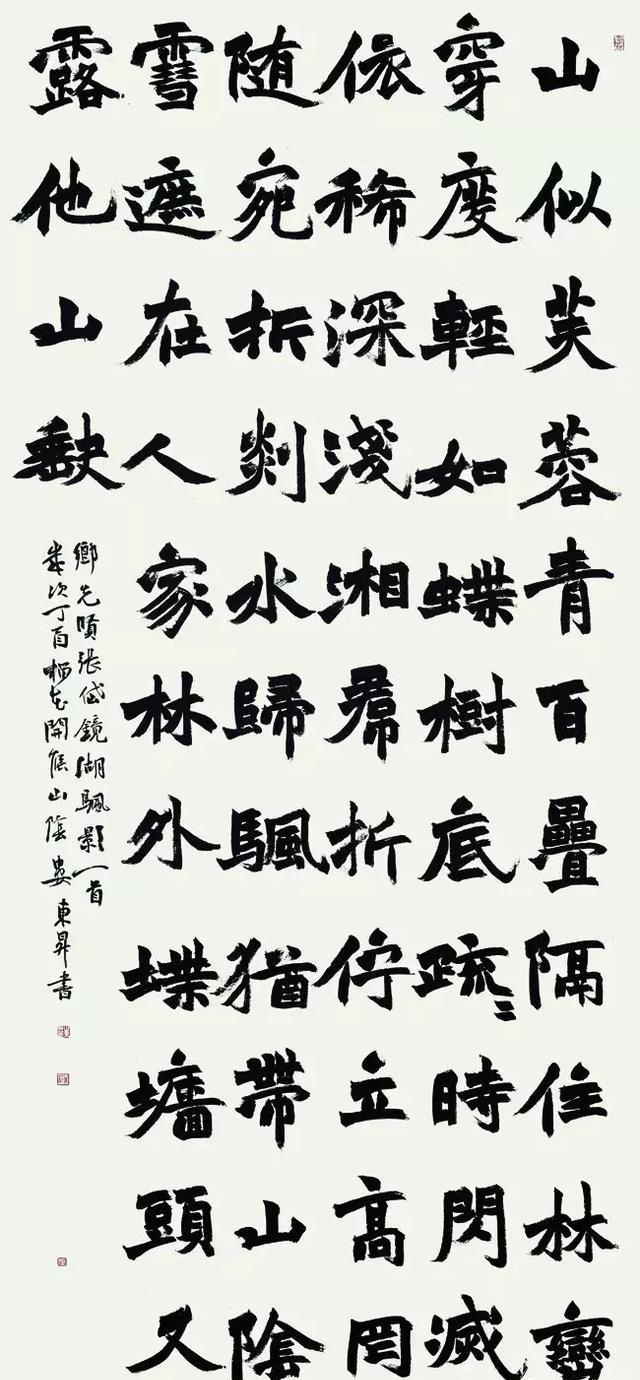 山似芙蓉青百疊隔住林巒
穿度輕如蝶樹底疏〻時閃滅
依稀深淺湘帬折佇立高岡
随宛折剡水歸颿猶帶山陰
雪遮在人家林外堞墻頭又
露他山缺
鄉先賢張岱鏡湖颿影一首
歲次丁酉花開候山陰婁東昇書